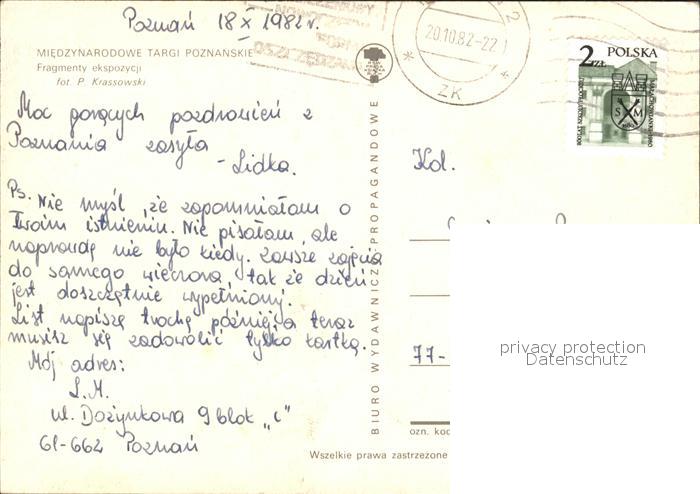 Poznań 18 X 1982 r.
MIĘDZYNARODOWE TARGI POZNAŃSKIE
Fragmenty ekspozycji
fot. P. Krassowski
Moc gorących pozdrowień z
Poznania zasyła
- Lidka.
Ps. Nie myśl, że zapomniałam o
Twoim istnieniu. Nie pisałam, ale
naprawdę nie było kiedy. Zawsze zajęcia
do samego wieczora, tak że dzień
jest doszczętnie wypełniony.
List napiszę trochę później, a teraz
musisz się zadowolić tylko kartką.
Mój adres:
L.M.
ul. Dożynkowa 9 blok „c"
61-662 Poznań
BIURO WYDAWNICZO-PROPAGANDOWE
OSZCZĘDZA
20.10.82-22
ZK
2 ZŁ POLSKA
S M
Kol.
77-
privacy protection
Datenschutz
ozn. kod
Wszelkie prawa zastrzeżone